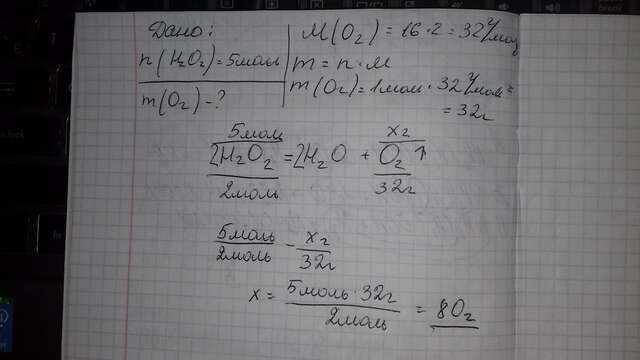 Дано:
n(H₂O₂)=5моль
m(O₂)-?
M(O₂)=16·2=32г/моль
m=n·M
m(O₂)=1моль·32г/моль=
=32г
5моль xг
2H₂O₂=2H₂O+O₂↑
2моль 32г
5моль/2моль - xг/32г
x= 5моль·32г/2моль = 80г